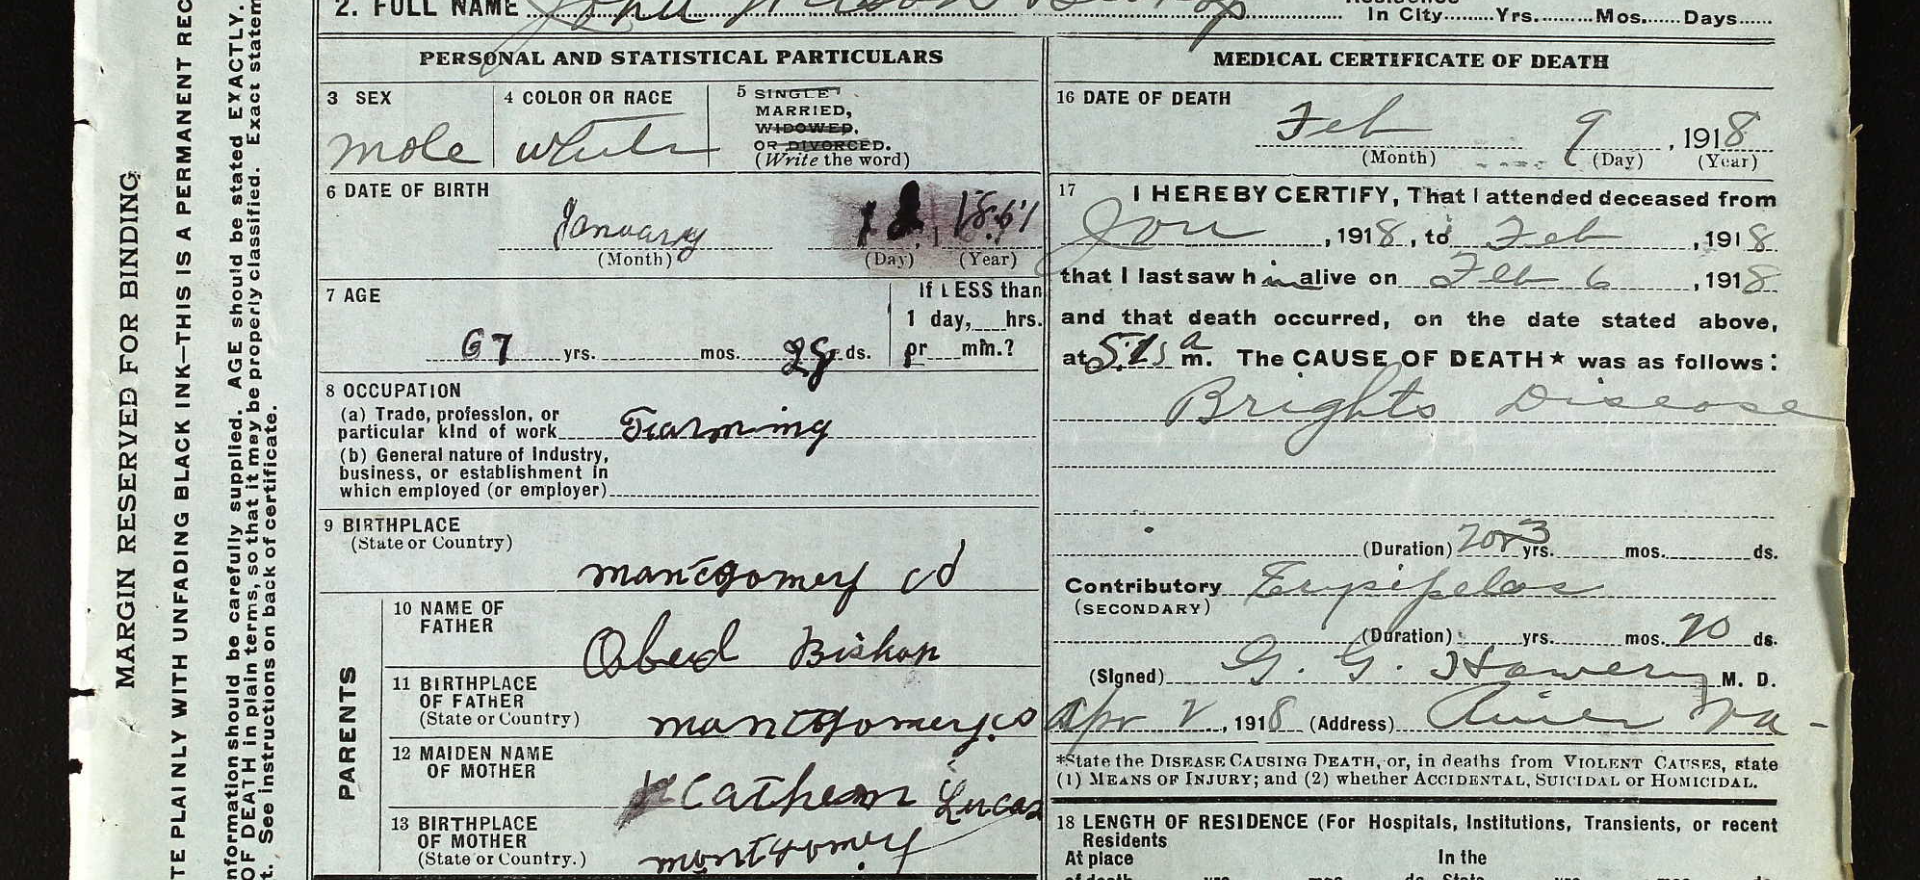 MARGIN RESERVED FOR BINDING
TE PLAINLY WITH UNFADING BLACK INK—THIS IS A PERMANENT REC
nformation should be carefully supplied. AGE should be stated EXACTLY.
OF DEATH in plain terms, so that it may be properly classified. Exact statem
t. See instructions on back of certificate.
2. FULL NAME John Bishop
In City Yrs. Mos. Days
PERSONAL AND STATISTICAL PARTICULARS
3 SEX
male
4 COLOR OR RACE
white
5 SINGLE
MARRIED,
WIDOWED,
OR DIVORCED.
(Write the word)
6 DATE OF BIRTH
January
(Month) (Day) (Year)
7 AGE
67 yrs. mos. 28 ds.
If LESS than
1 day, hrs.
or min.?
8 OCCUPATION
(a) Trade, profession, or
particular kind of work Farming
(b) General nature of Industry,
business, or establishment in
which employed (or employer)
9 BIRTHPLACE
(State or Country)
montgomery co
PARENTS
10 NAME OF
FATHER
Obed Bishop
11 BIRTHPLACE
OF FATHER
(State or Country)
montgomery co
12 MAIDEN NAME
OF MOTHER
Lucas
13 BIRTHPLACE
OF MOTHER
(State or Country.)
montgomery
MEDICAL CERTIFICATE OF DEATH
16 DATE OF DEATH
Feb 9, 1918
(Month) (Day) (Year)
17 I HEREBY CERTIFY, That I attended deceased from
Jan, 1918, to Feb, 1918
that I last saw him alive on Feb 6, 1918
and that death occurred, on the date stated above,
at a m. The CAUSE OF DEATH* was as follows:
Brights Disease
(Duration) 2 or 3 yrs. mos. ds.
Contributory Erysipelas
(SECONDARY)
(Duration) yrs. mos. 20 ds.
(Signed) G. G. Howery M. D.
Apr 2, 1918 (Address) Va-
*State the DISEASE CAUSING DEATH, or, in deaths from VIOLENT CAUSES, state
(1) MEANS OF INJURY; and (2) whether ACCIDENTAL, SUICIDAL or HOMICIDAL.
18 LENGTH OF RESIDENCE (For Hospitals, Institutions, Transients, or recent
Residents
At place In the
of death yrs. mos. ds. State yrs. mos. ds.